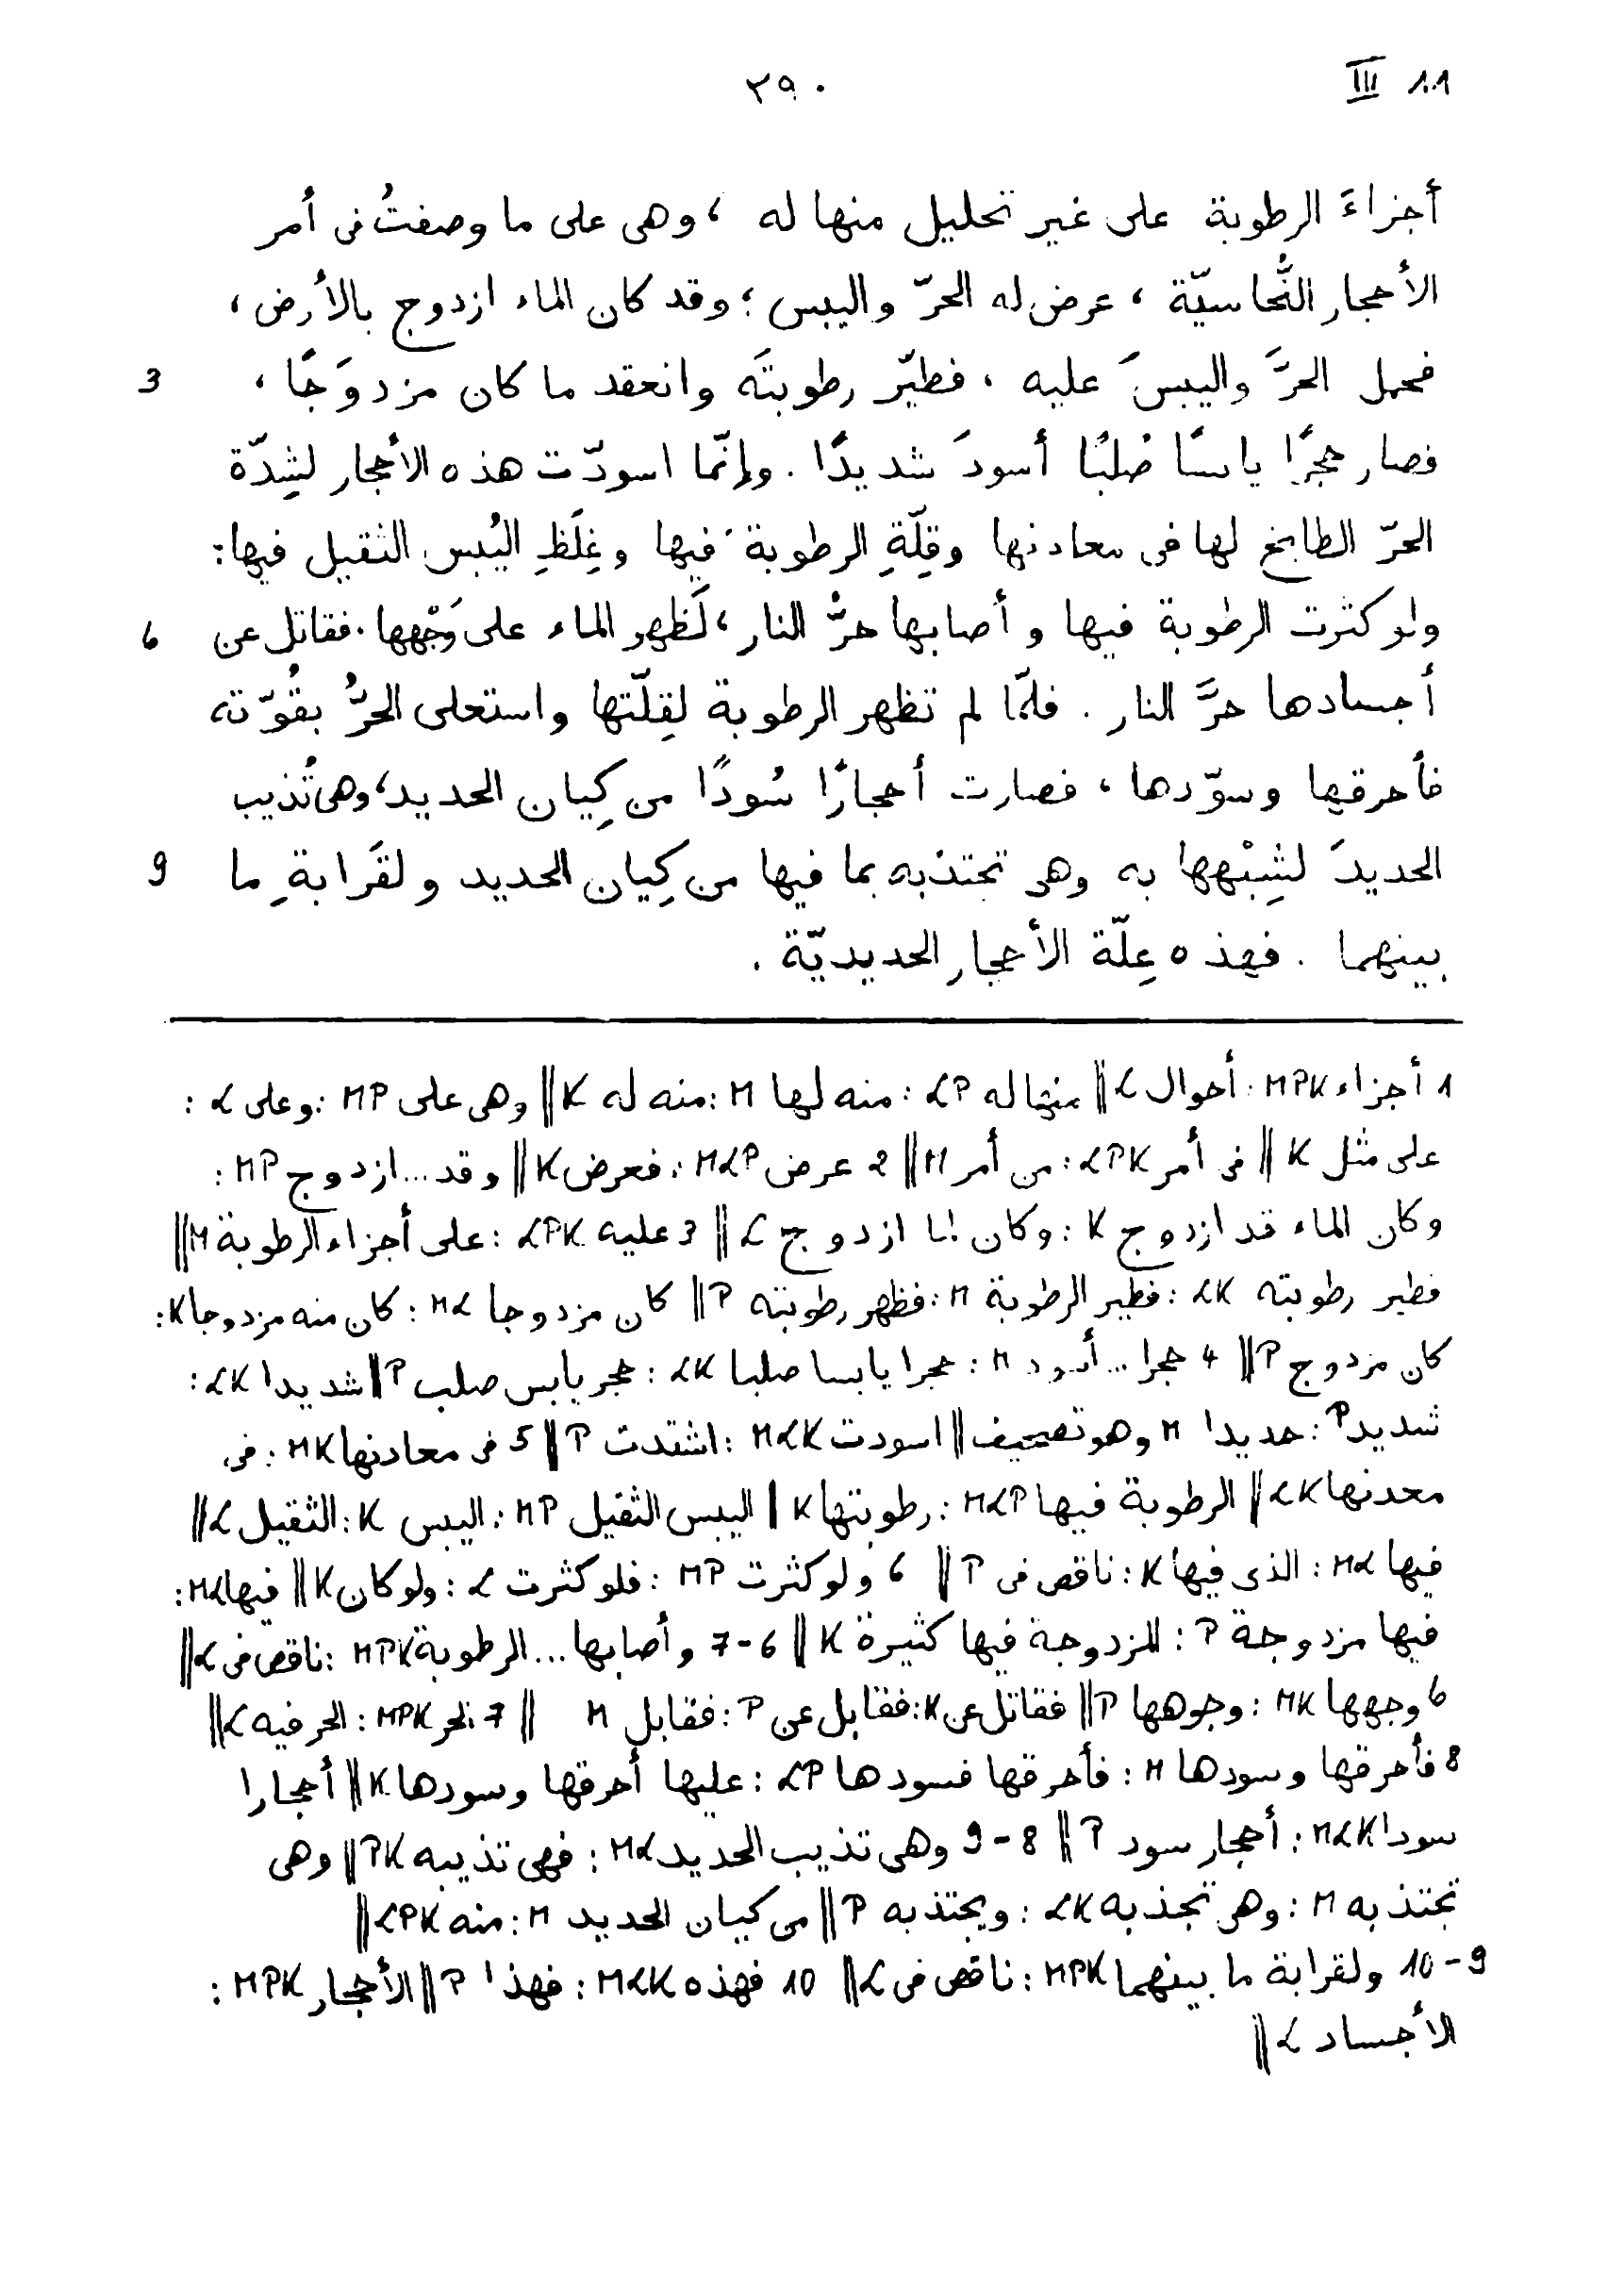 III 11
٢٩٠
أجزاءَ الرطوبة على غير تحليل منها له ، وهى على ما وصفتُ فى أمر
الأحجار النُّحاسيّة ، عرض له الحرّ واليبس ؛ وقد كان الماء ازدوج بالأرض ،
3 فحمل الحرَّ واليبسَ عليه ، فطيّر رطوبتَه وانعقد ما كان مزدوَجًا ،
فصار حجرًا يابسًا صُلبًا أسودَ شديدًا . وإنّما اسودّت هذه الأحجار لشِدّة
الحرّ الطابخ لها فى معادنها وقِلّةِ الرطوبة فيها وغِلَظِ اليُبس الثقيل فيها :
6 ولو كثرت الرطوبة فيها وأصابها حرُّ النار ، لَظهر الماء على وَجْهها . فقاتل عن
أجسادها حرَّ النار . فلمّا لم تظهر الرطوبة لقِلّتها واستعلى الحرُّ بقُوّته
فأحرقها وسوّدها ، فصارت أحجارًا سُودًا من كِيان الحديد ، وهى تُذيب
9 الحديدَ لشِبْهها به وهى تجتذبه بما فيها من كِيان الحديد ولقَرابةِ ما
بينهما . فهذه عِلّة الأحجار الحديديّة .
1 أجزاء MPK : أحوال L || منها له LP : منه لها M : منه له K || وهى على MP : وعلى L :
على مثل K || فى أمر LPK : من أمر M || 2 عرض MLP : فعرض K || وقد ... ازدوج MP :
وكان الماء قد ازدوج K : وكان ازدوج L || 3 عليه LPK : على أجزاء الرطوبة M ||
فطير رطوبته LK : فطير الرطوبة M : فظهر رطوبته P || كان مزدوجا ML : كان منه مزدوجا K :
كان مزدوج P || 4 حجرا ... أسود M : حجرا يابسا صلبا LK : حجر يابس صلب P || شديدا LK :
شديد P : حديدا M وهو تصحيف || اسودت MLK : اشتدت P || 5 فى معادنها MK : فى
معدنها LK || الرطوبة فيها MLP : رطوبتها K || اليبس الثقيل MP : اليبس K : الثقيل L ||
فيها ML : الذى فيها K : ناقص فى P || 6 ولو كثرت MP : فلو كثرت L : ولو كان K || فيها ML :
فيها مزدوجة P : المزدوجة فيها كثيرة K || 6-7 وأصابها ... الرطوبة MPK : ناقص فى L ||
6 وجهها MK : وجوهها P || فقاتل عن K : فقابل عن P : فقابل M || 7 الحر MPK : الحر فيه L ||
8 فأحرقها وسودها M : فأحرقها فسودها LP : عليها أحرقها وسودها K || أحجارا
سودا MLK : أحجار سود P || 8-9 وهى تذيب الحديد ML : فهى تذيبه PK || وهى
تجتذبه M : وهى تجذبه LK : ويجتذبه P || من كيان الحديد M : منه LPK ||
9-10 ولقرابة ما بينهما MPK : ناقص فى L || 10 فهذه MLK : فهذا P || الأحجار MPK :
الأجساد L ||